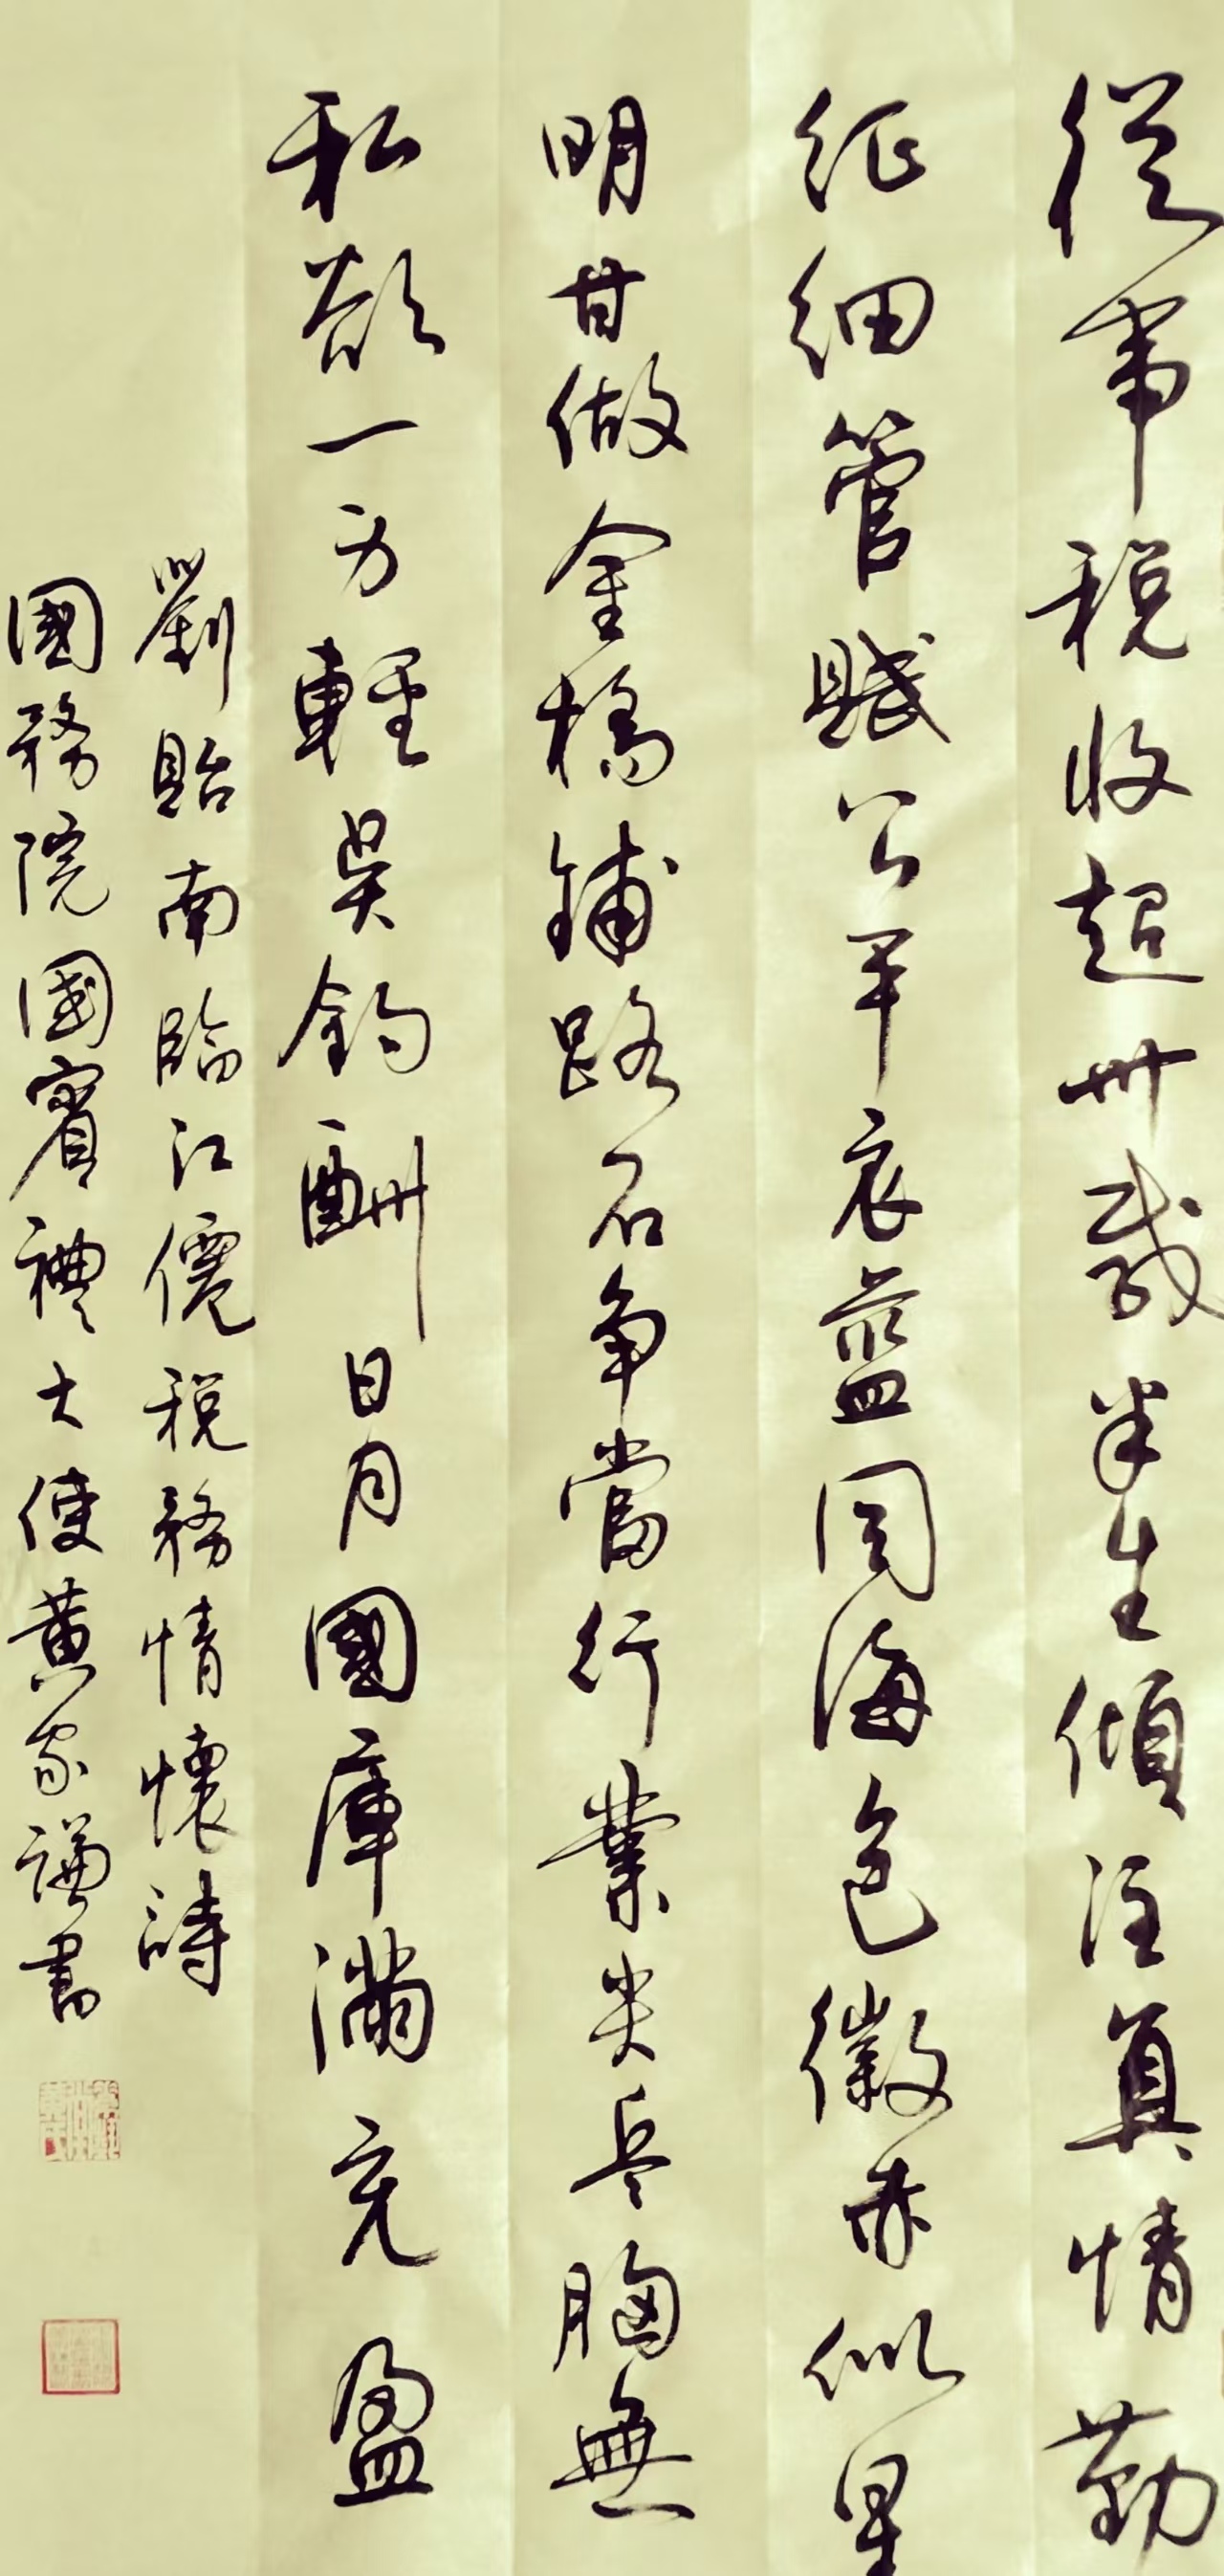 從事稅收超卅載半生傾注真情勤
征細管賦公平衣藍同海色徽赤似星
明甘做金橋鋪路石争當行業尖兵胸無
私欲一方輕吴鈎酬日月國庫滿充盈
劉貽南臨江僊稅務情懷詩
國務院國賓禮大使黄家謙書